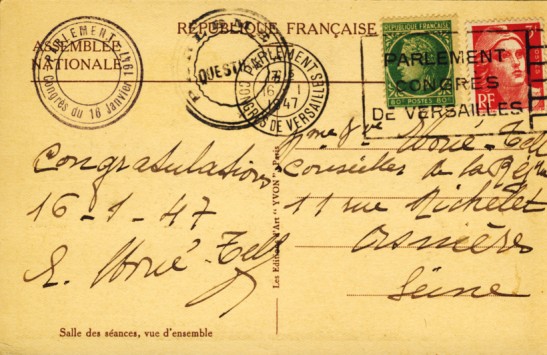 RÉPUBLIQUE FRANÇAISE
ASSEMBLÉE
NATIONALE
PARLEMENT 1947
Congrès du 16 Janvier
QUESTU
PARLEMENT
16 1
47
CONGRÈS DE VERSAILLES
RÉPUBLIQUE FRANÇAISE
80c POSTES 80c
RF
PARLEMENT
CONGRÈS
DE VERSAILLES
Congratulations
16-1-47
E. Eboué-Tell
Mme Vve Eboué-Tell
Conseiller de la
11 rue Michelet
Asnières
Seine
Les Editions d'Art "YVON" Paris
Salle des séances, vue d'ensemble